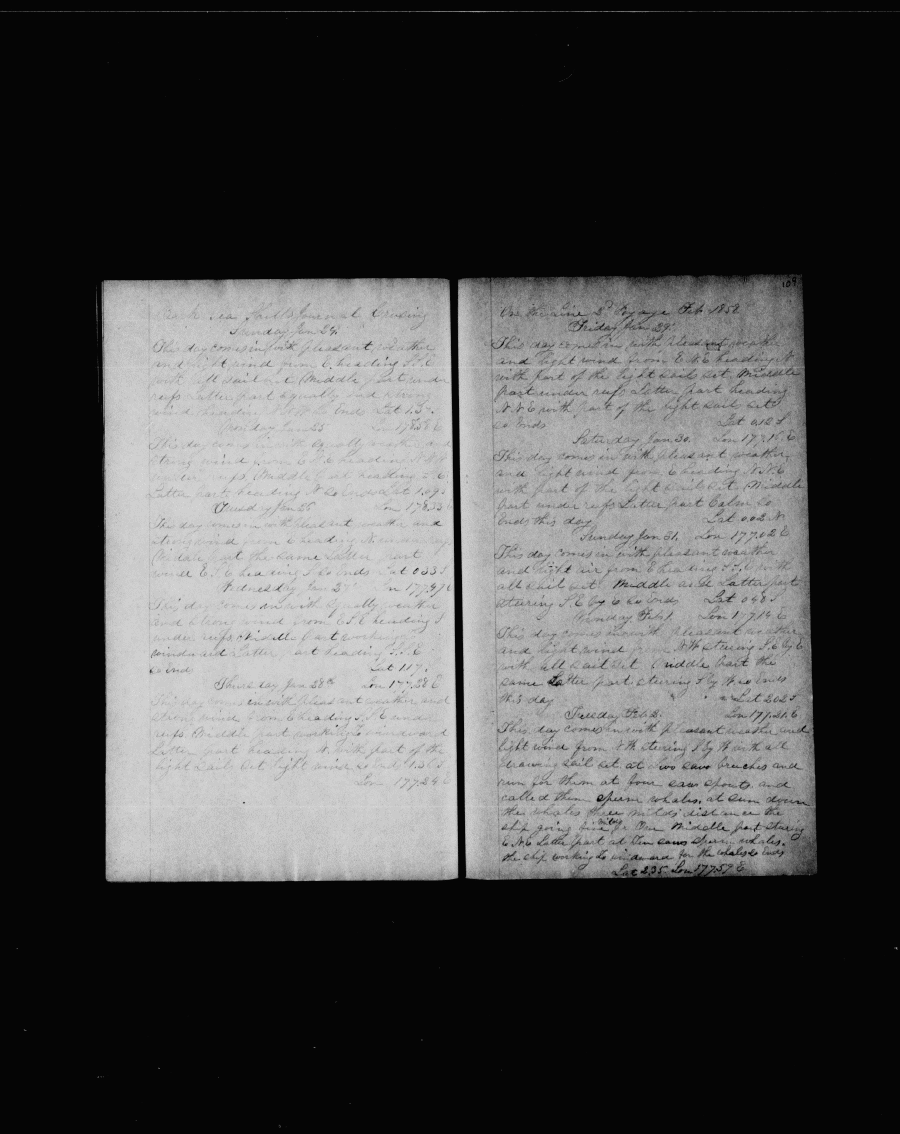 Bark Sea Journal Cruising
Sunday Jan 24
This day comes in with pleasant weather
and light wind from E heading S.S.E
with all sail out Middle part under
reefs Latter part squally and strong
wind heading N.N.W So Ends Lat
Monday Jan 25 Lon 178.58 E
This day comes in with squally weather and
strong wind from E.N.E heading N.N.W
under reefs Middle part heading S.E
Latter part heading N So Ends Lat 1.09
Tuesday Jan 26 Lon 178.33 E
This day comes in with pleasant weather and
strong wind from E heading N under reefs
Middle part the same Latter part
wind E.S.E heading S So Ends Lat 0.33 S
Wednesday Jan 27 Lon 177.49 E
This day comes in with squally weather
and strong wind from E.S.E heading S
under reefs Middle part working to
windward Latter part heading S.S.E
So Ends Lat 1.17 S
Thursday Jan 28th Lon 177.28 E
This day comes in with pleasant weather and
strong wind from E heading S.S.E under
reefs Middle part working to windward
Latter part heading N. with part of the
light sails out light wind So Ends 1.30 S
Lon 177.24 E
109
On the Line 2d Voyage Feb 1858
Friday Jan 29
This day comes in with pleasant weather
and light wind from E.N.E heading N
with part of the light sails out Middle
part under reefs Latter part heading
N.N.E with part of the light sails out
So Ends Lat 0.12 S
Saturday Jan 30. Lon 177.16 E
This day comes in with pleasant weather
and light wind from E heading N.N.E
with part of the light sails out Middle
part under reefs Latter part Calm So
Ends this day Lat 0.02 N
Sunday Jan 31. Lon 177.02 E
This day comes in with pleasant weather
and light air from E heading S.S.E with
all sail out Middle and Latter part
steering S.E by E So Ends Lat 0.48 S
Monday Feb 1. Lon 177.14 E
This day comes in with pleasant weather
and light wind from N.W steering S.E by E
with all sail out Middle part the
same Latter part steering S by W so ends
this day " " " Lat 2.02 S
Tuesday Feb 2. Lon 177.21 E
This day comes in with pleasant weather and
light wind from N.W steering S by W with all
drawing sail out at two saw breaches and
run for them at four saw spouts and
called them sperm whales. at sun down
the whales three miles distance the
ship going five miles pr Our Middle part stering
E.N.E Latter part at Ten saws sperm whales.
the ship working to windward for the whales So Ends
Lat 2.35 Lon 177.57 E